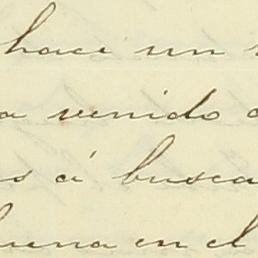 hace un
a venido a
s á busca
buena en el